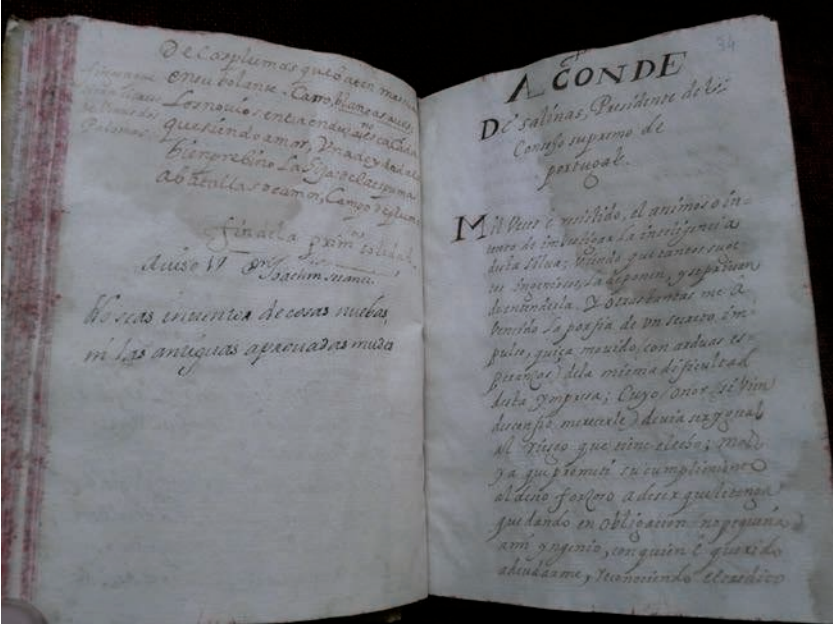 De las plumas que baten
en su bolante Carro, blancas aues,
Los nouios sentaendu
que siendo amor, Una deydad alada
bien prebino La hija de la espuma
a batallas de amor, Campo de pluma
fin de la primª soledad.
Auiso VI
No seas inuentor de cosas nuebas,
ni las antiguas aprouadas mudes
34
A CONDE
De salinas, Presidente del
Consejo supremo de
portugal.
Mil Veces é resistido, el animoso in-
tento de inuestigar la inteligencia
desta silua; viendo que tantos suti
les ingenios, la deponen, y se priuan
de entenderla. Y otras tantas me a
Vencido la porfia de vn secreto im-
pulso, quiça mouido (con arduas es-
peranças) de la misma dificultad
desta Ympresa; Cuyo onor (si bien
desconfio merecerle) deuia ser ygual
al riesgo que tiene electo;
ya que prometi su cumplimiento
al deseo forzoso a desir que le tenga
quedando en obligacion no pequeña
a mi yngenio, con quien é querido
adeudarme, reconociendo el credito